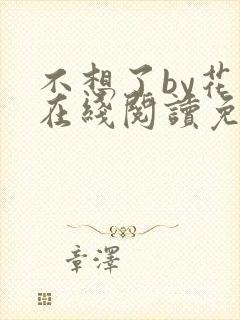 不想了by花
在綫閱讀免
章澤